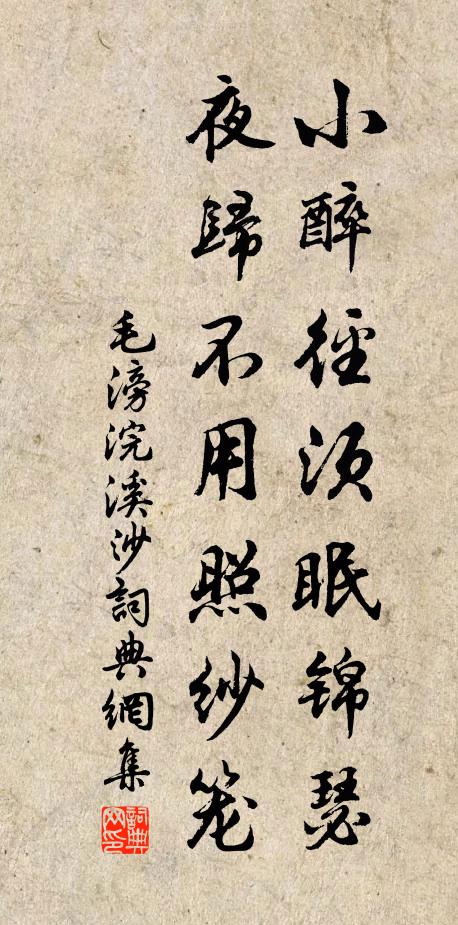 小醉徑須眠錦瑟
夜歸不用照紗笼
毛滂浣溪沙詞典網集
詞典网印